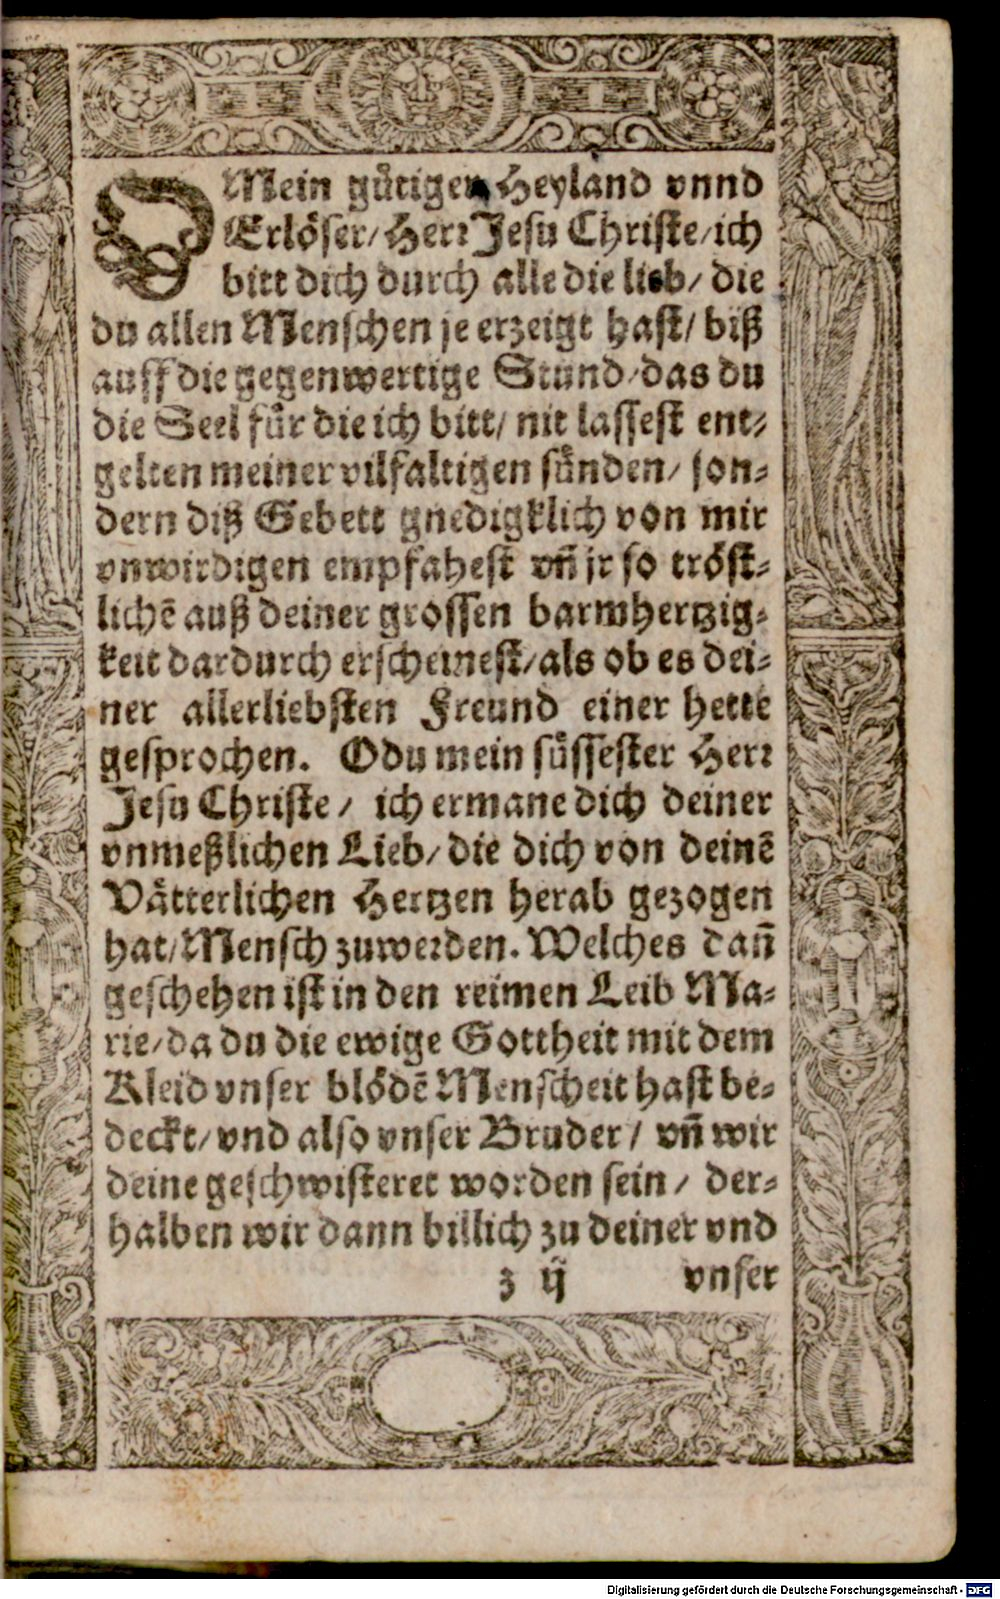 O Mein gütiger Heyland vnnd
Erlöser/ Herr Jesu Christe/ ich
bitt dich durch alle die lieb/ die
du allen Menschen je erzeigt hast/ biß
auff die gegenwertige Stund/ das du
die Seel für die ich bitt/ nit lassest ent-
gelten meiner vilfaltigen sünden/ son-
dern diß Gebett gnedigklich von mir
vnwirdigen empfahest vñ jr so tröst-
lichē auß deiner grossen barmhertzig-
keit dardurch erscheinest/ als ob es dei-
ner allerliebsten Freund einer hette
gesprochen. O du mein süssester Herr
Jesu Christe/ ich ermane dich deiner
vnmeßlichen Lieb/ die dich von deinē
Vätterlichen Hertzen herab gezogen
hat/ Mensch zuwerden. Welches dañ
geschehen ist in den reimen Leib Ma-
rie/ da du die ewige Gottheit mit dem
Kleid vnser blödē Menscheit hast be-
deckt/ vnd also vnser Bruder/ vñ wir
deine geschwisteret worden sein/ der-
halben wir dann billich zu deiner vnd
z ij vnser
Digitalisierung gefördert durch die Deutsche Forschungsgemeinschaft - DFG